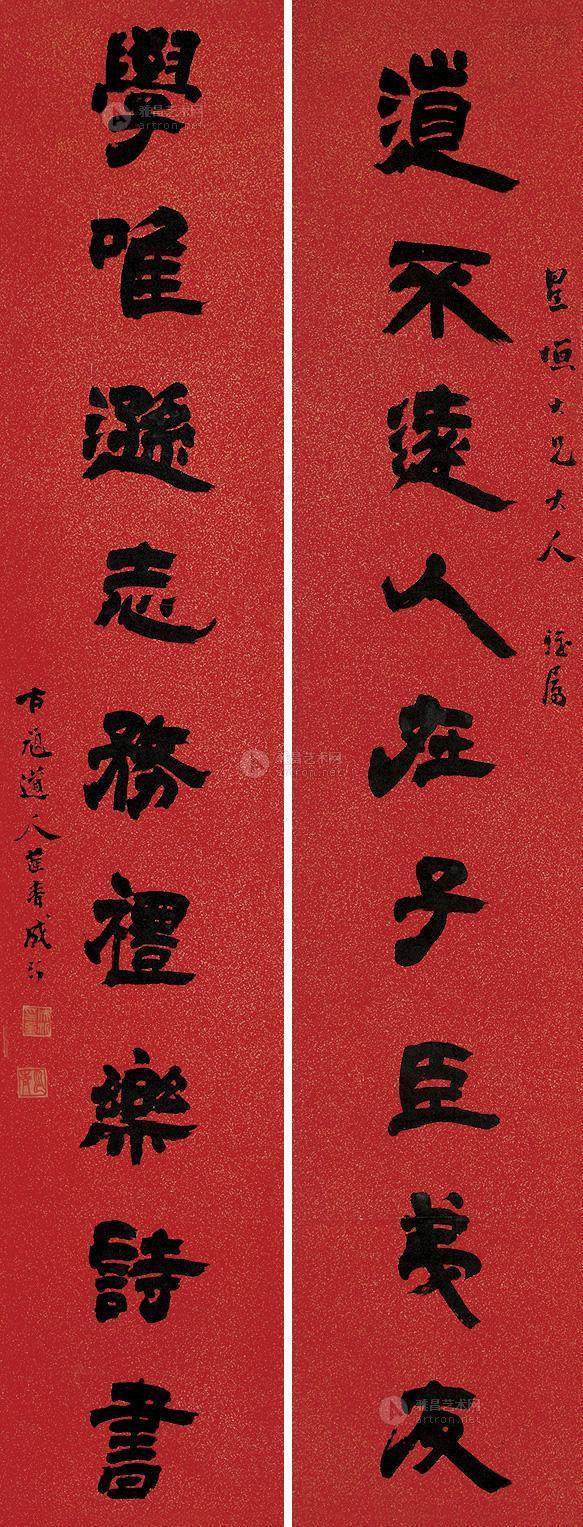 星垣大兄大人雅属
道不远人在子臣弟友
學唯遜志務禮樂詩書
道人
雅昌艺术网
artron.net
雅昌艺术网
artron.net
雅昌艺术网
artron.net